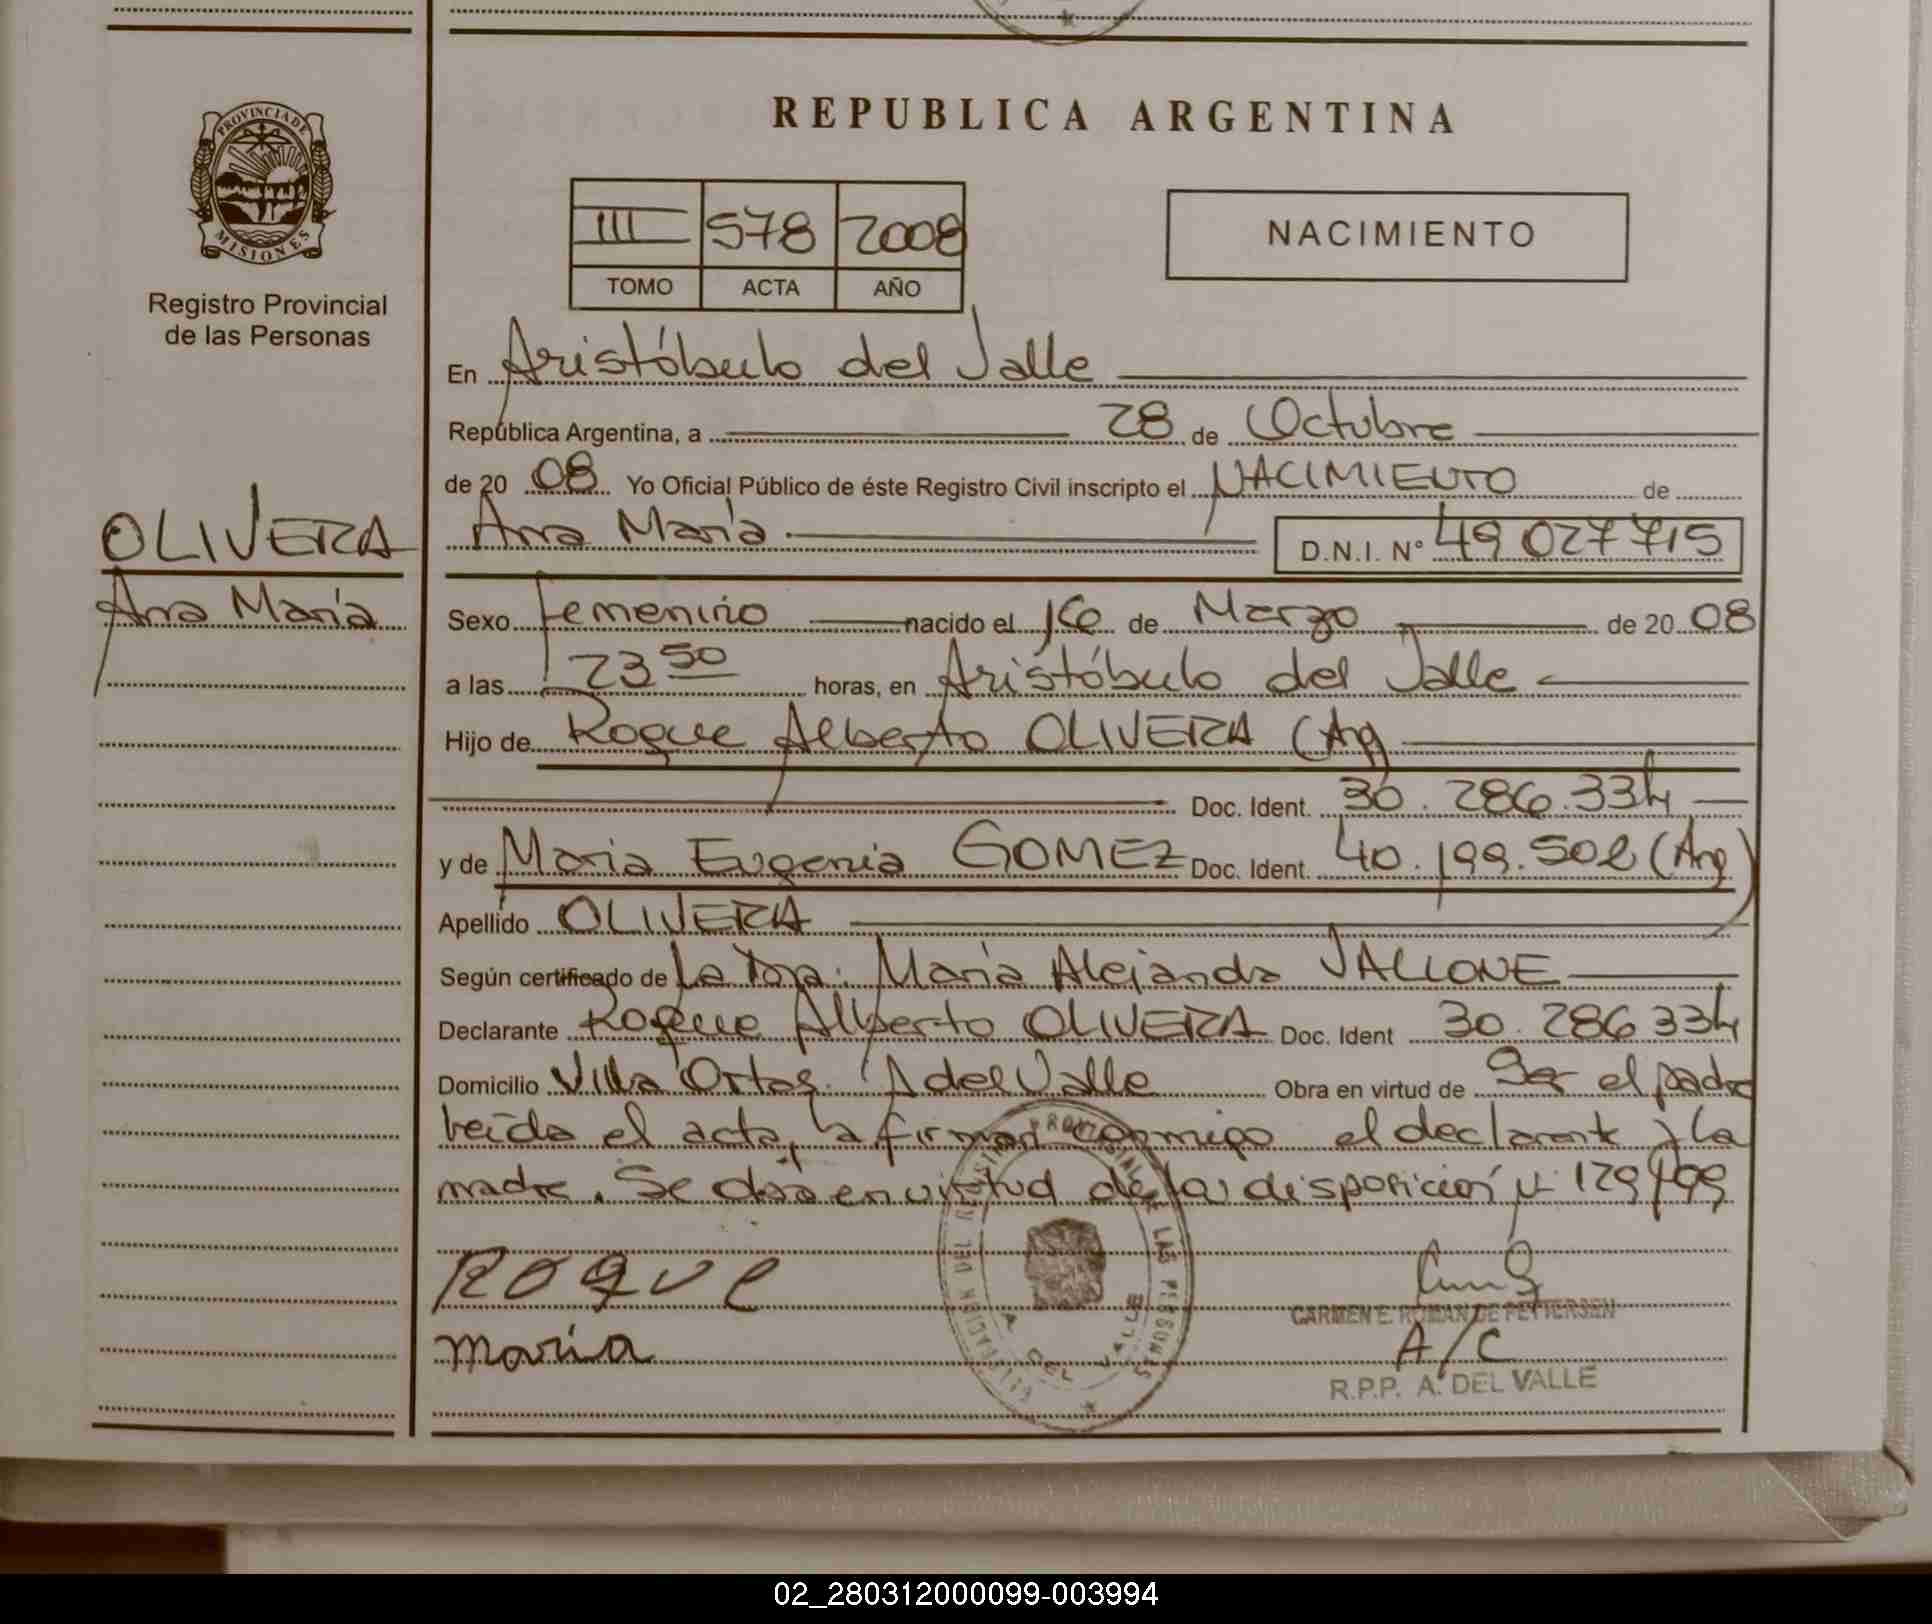 REPUBLICA ARGENTINA
PROVINCIA DE
MISIONES
Registro Provincial
de las Personas
III 578 2008
TOMO ACTA AÑO
NACIMIENTO
En Aristóbulo del Valle
República Argentina, a 28 de Octubre
de 20 08 Yo Oficial Público de éste Registro Civil inscripto el NACIMIENTO de
OLIVERA
Ana María
Ana María D.N.I. N° 49 027 715
Sexo femenino nacido el 16 de Marzo de 20 08
a las 23 50 horas, en Aristóbulo del Valle
Hijo de Roque Alberto OLIVERA (Arg)
Doc. Ident. 30.286.334
y de Maria Eugenia GOMEZ Doc. Ident. 40.199.502 (Arg)
Apellido OLIVERA
Según certificado de La Dra. María Alejanda VALLONE
Declarante Roque Alberto OLIVERA Doc. Ident 30.286 334
Domicilio Villa Ortas. A del Valle Obra en virtud de Ser el padre
leída el acta, la firman conmigo el declarante y la
madre. Se en virtud de la disposición N 129/99
ROQUE
maria
DELEGACION DEL REGISTRO PROVINCIAL DE LAS PERSONAS
A. DEL VALLE
CARMEN E. ROMAN DE PETTERSEN
A/C
R.P.P. A. DEL VALLE
02_280312000099-003994